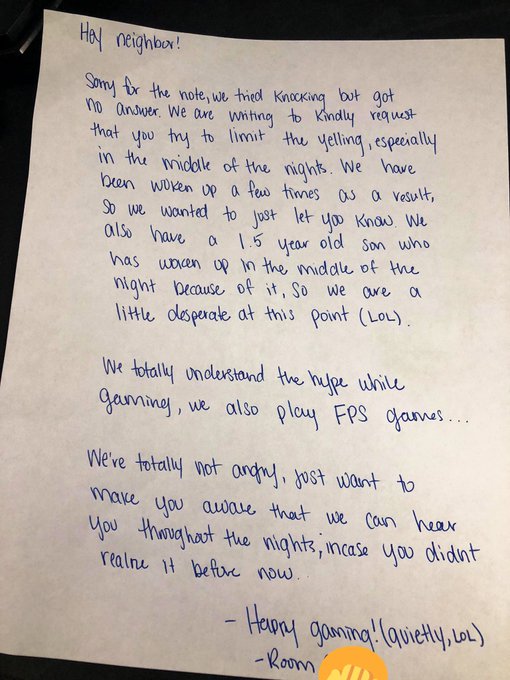 Hey neighbor!
Sorry for the note, we tried knocking but got
no answer. We are writing to kindly request
that you try to limit the yelling, especially
in the middle of the nights. We have
been woken up a few times as a result,
so we wanted to just let you know. We
also have a 1.5 year old son who
has waken up in the middle of the
night because of it, so we are a
little desperate at this point (LOL).
We totally understand the hype while
gaming, we also play FPS games...
We're totally not angry, just want to
make you aware that we can hear
you throughout the nights, incase you didnt
realize it before now..
- Happy gaming! (quietly, LOL)
- Room